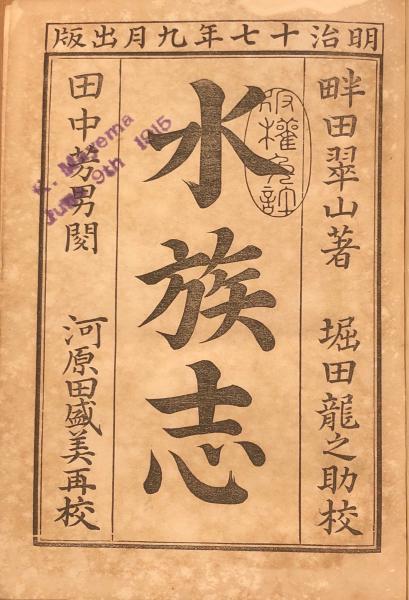 明治十七年九月出版
畔田翠山著 堀田龍之助校
水族志
版權免許
田中芳男閱 河原田盛美再校
June 9th 1915